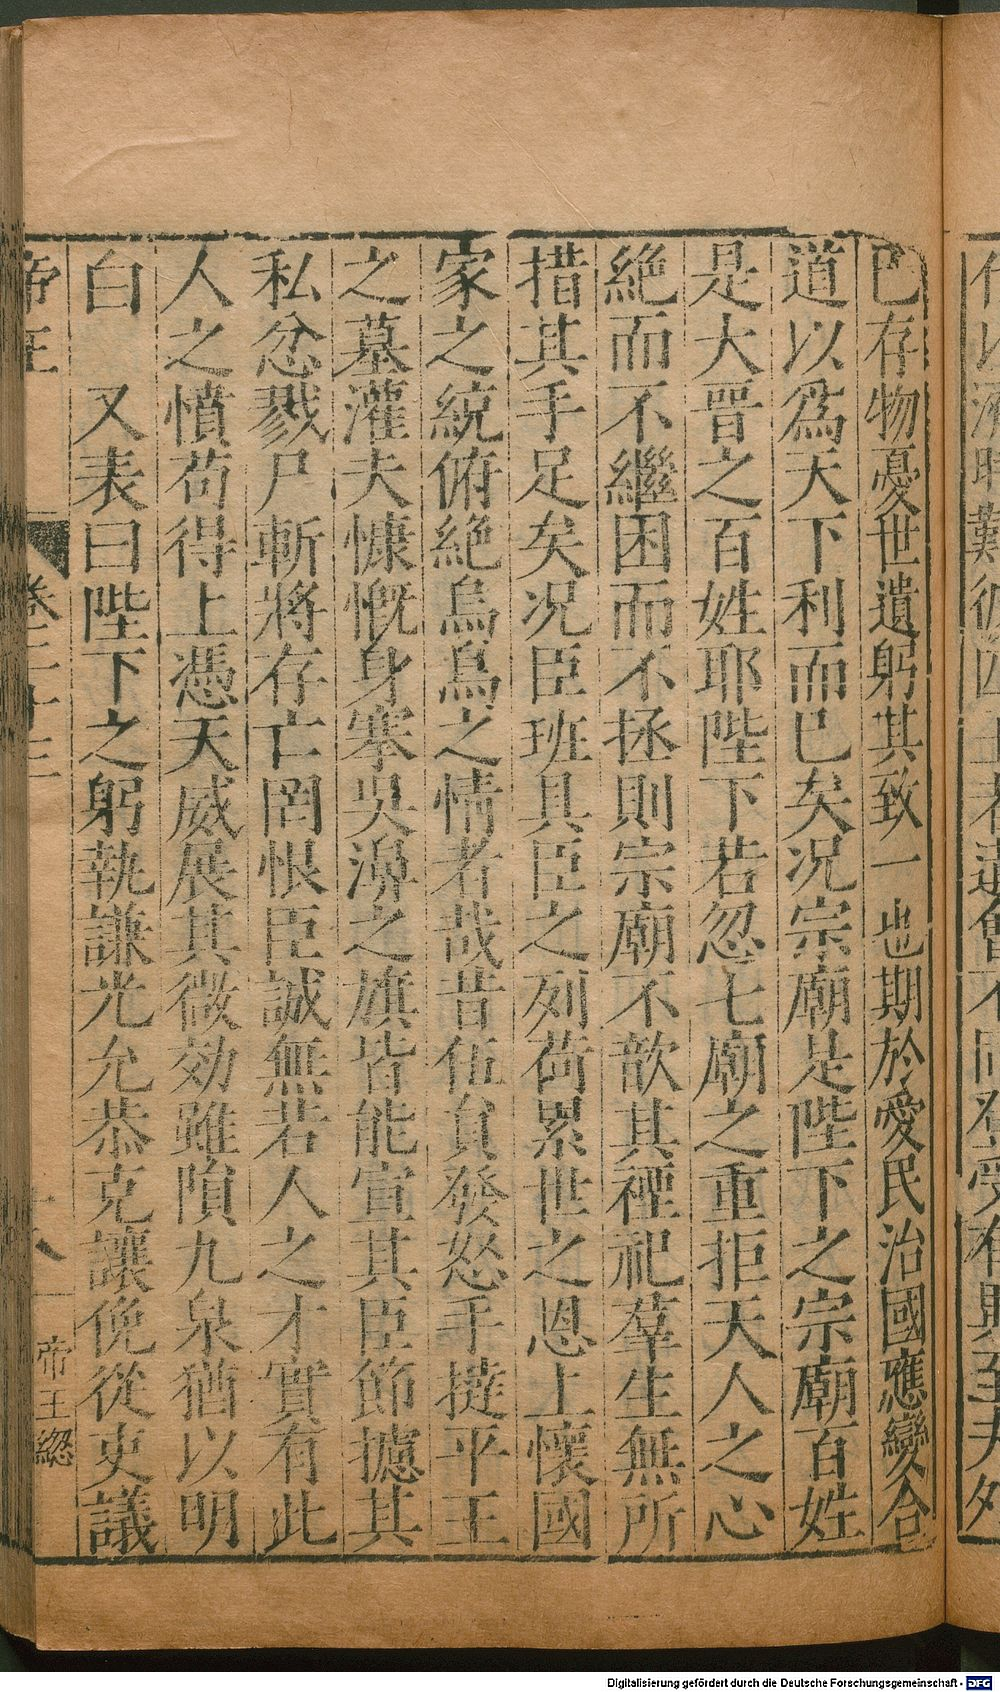 已存物憂世遺躬其致一也期於愛民治國應變合
道以爲天下利而已矣况宗廟是陛下之宗廟百姓
是大晋之百姓耶陛下若忽七廟之重拒天人之心
絶而不繼困而不拯則宗廟不歆其禋祀羣生無所
措其手足矣况臣班具臣之列荷累世之恩上懷國
家之統俯絶烏鳥之情者哉昔伍員發怒手撻平王
之墓灌夫慷慨身搴吳濞之旗皆能宣其臣節攄其
私忿戮尸斬將存亡罔恨臣誠無若人之才實有此
人之憤苟得上憑天威展其微効雖隕九泉猶以明
白　又表曰陛下之躬執謙光允恭克讓俛從吏議
帝王　卷二十三　十八　帝王總
Digitalisierung gefördert durch die Deutsche Forschungsgemeinschaft - DFG